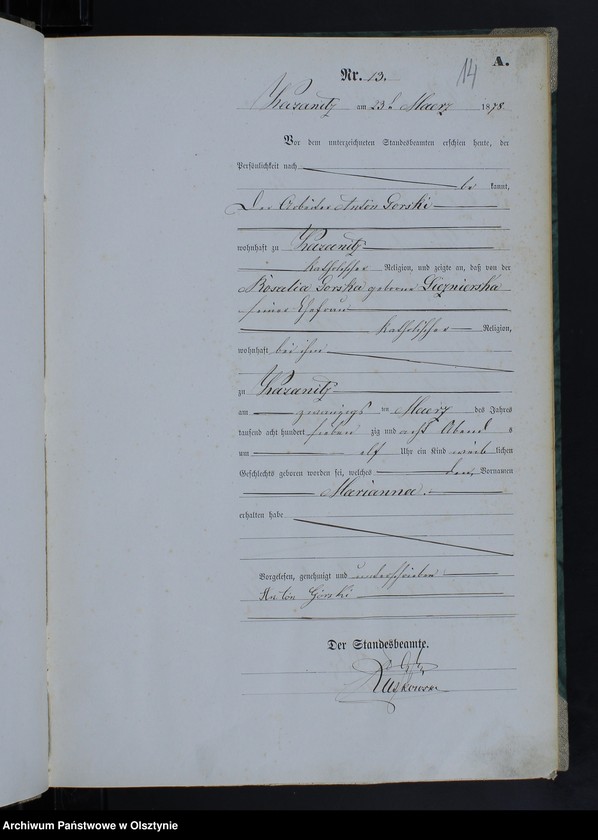 14 A.
Nr. 13.
Kazanitz am 23t Maerz 1878
Vor dem unterzeichneten Standesbeamten erschien heute, der
Persönlichkeit nach
be kannt,
Der Arbeiter Anton Gorski
wohnhaft zu Kazanitz
katholischer Religion, und zeigte an, daß von der
Rosalia Gorska geborene
seiner Ehefrau
katholischer Religion,
wohnhaft bei ihm
zu Kazanitz
am zwanzigs ten Maerz des Jahres
tausend acht hundert sieben zig und acht Abend s
um elf Uhr ein Kind weib lichen
Geschlechts geboren worden sei, welches den Vornamen
Marianna.
erhalten habe
Vorgelesen, genehmigt und unterschrieben
Anton Górski
Der Standesbeamte.
Archiwum Państwowe w Olsztynie